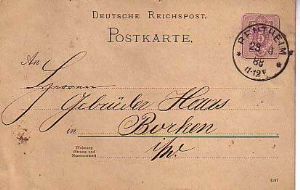 DEUTSCHE REICHSPOST.
POSTKARTE.
BENTHEIM
28
88
11-12V
An
Herren
Gebrüder Haas
in Borken
i/W.
Wohnung